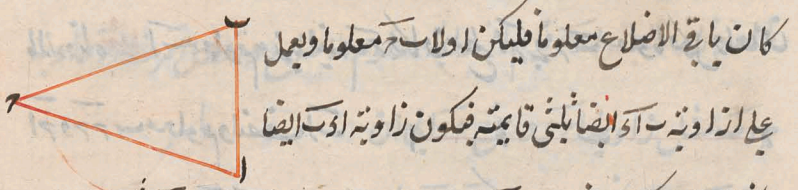 كان باقي الاضلاع معلوما فليكن اولا ب ج معلوما ويعمل
على ا زاوية ب ا ج ايضا ثلثى قايمة فيكون زاوية ا ج ب ايضا
ب
ج
ا